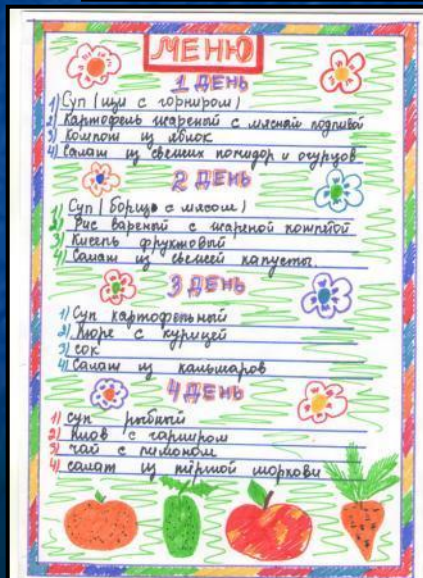 МЕНЮ
1 ДЕНЬ
1) Суп (щи с горниром)
2) Картофель жареный с мясной подливой
3) Компот из яблок
4) Салат из свежих помидор и огурцов
2 ДЕНЬ
1) Суп (борищ с мясом)
2) Рис вареный с жареной котлетой
3) Кисель фруктовый
4) Салат из свежей капусты.
3 ДЕНЬ
1) Суп картофельный
2) Пюре с курицей
3) сок
4) Салат из кальмаров
4 ДЕНЬ
1) суп рыбный
2) Плов с гарниром
3) чай с лимоном
4) салат из тёртой моркови